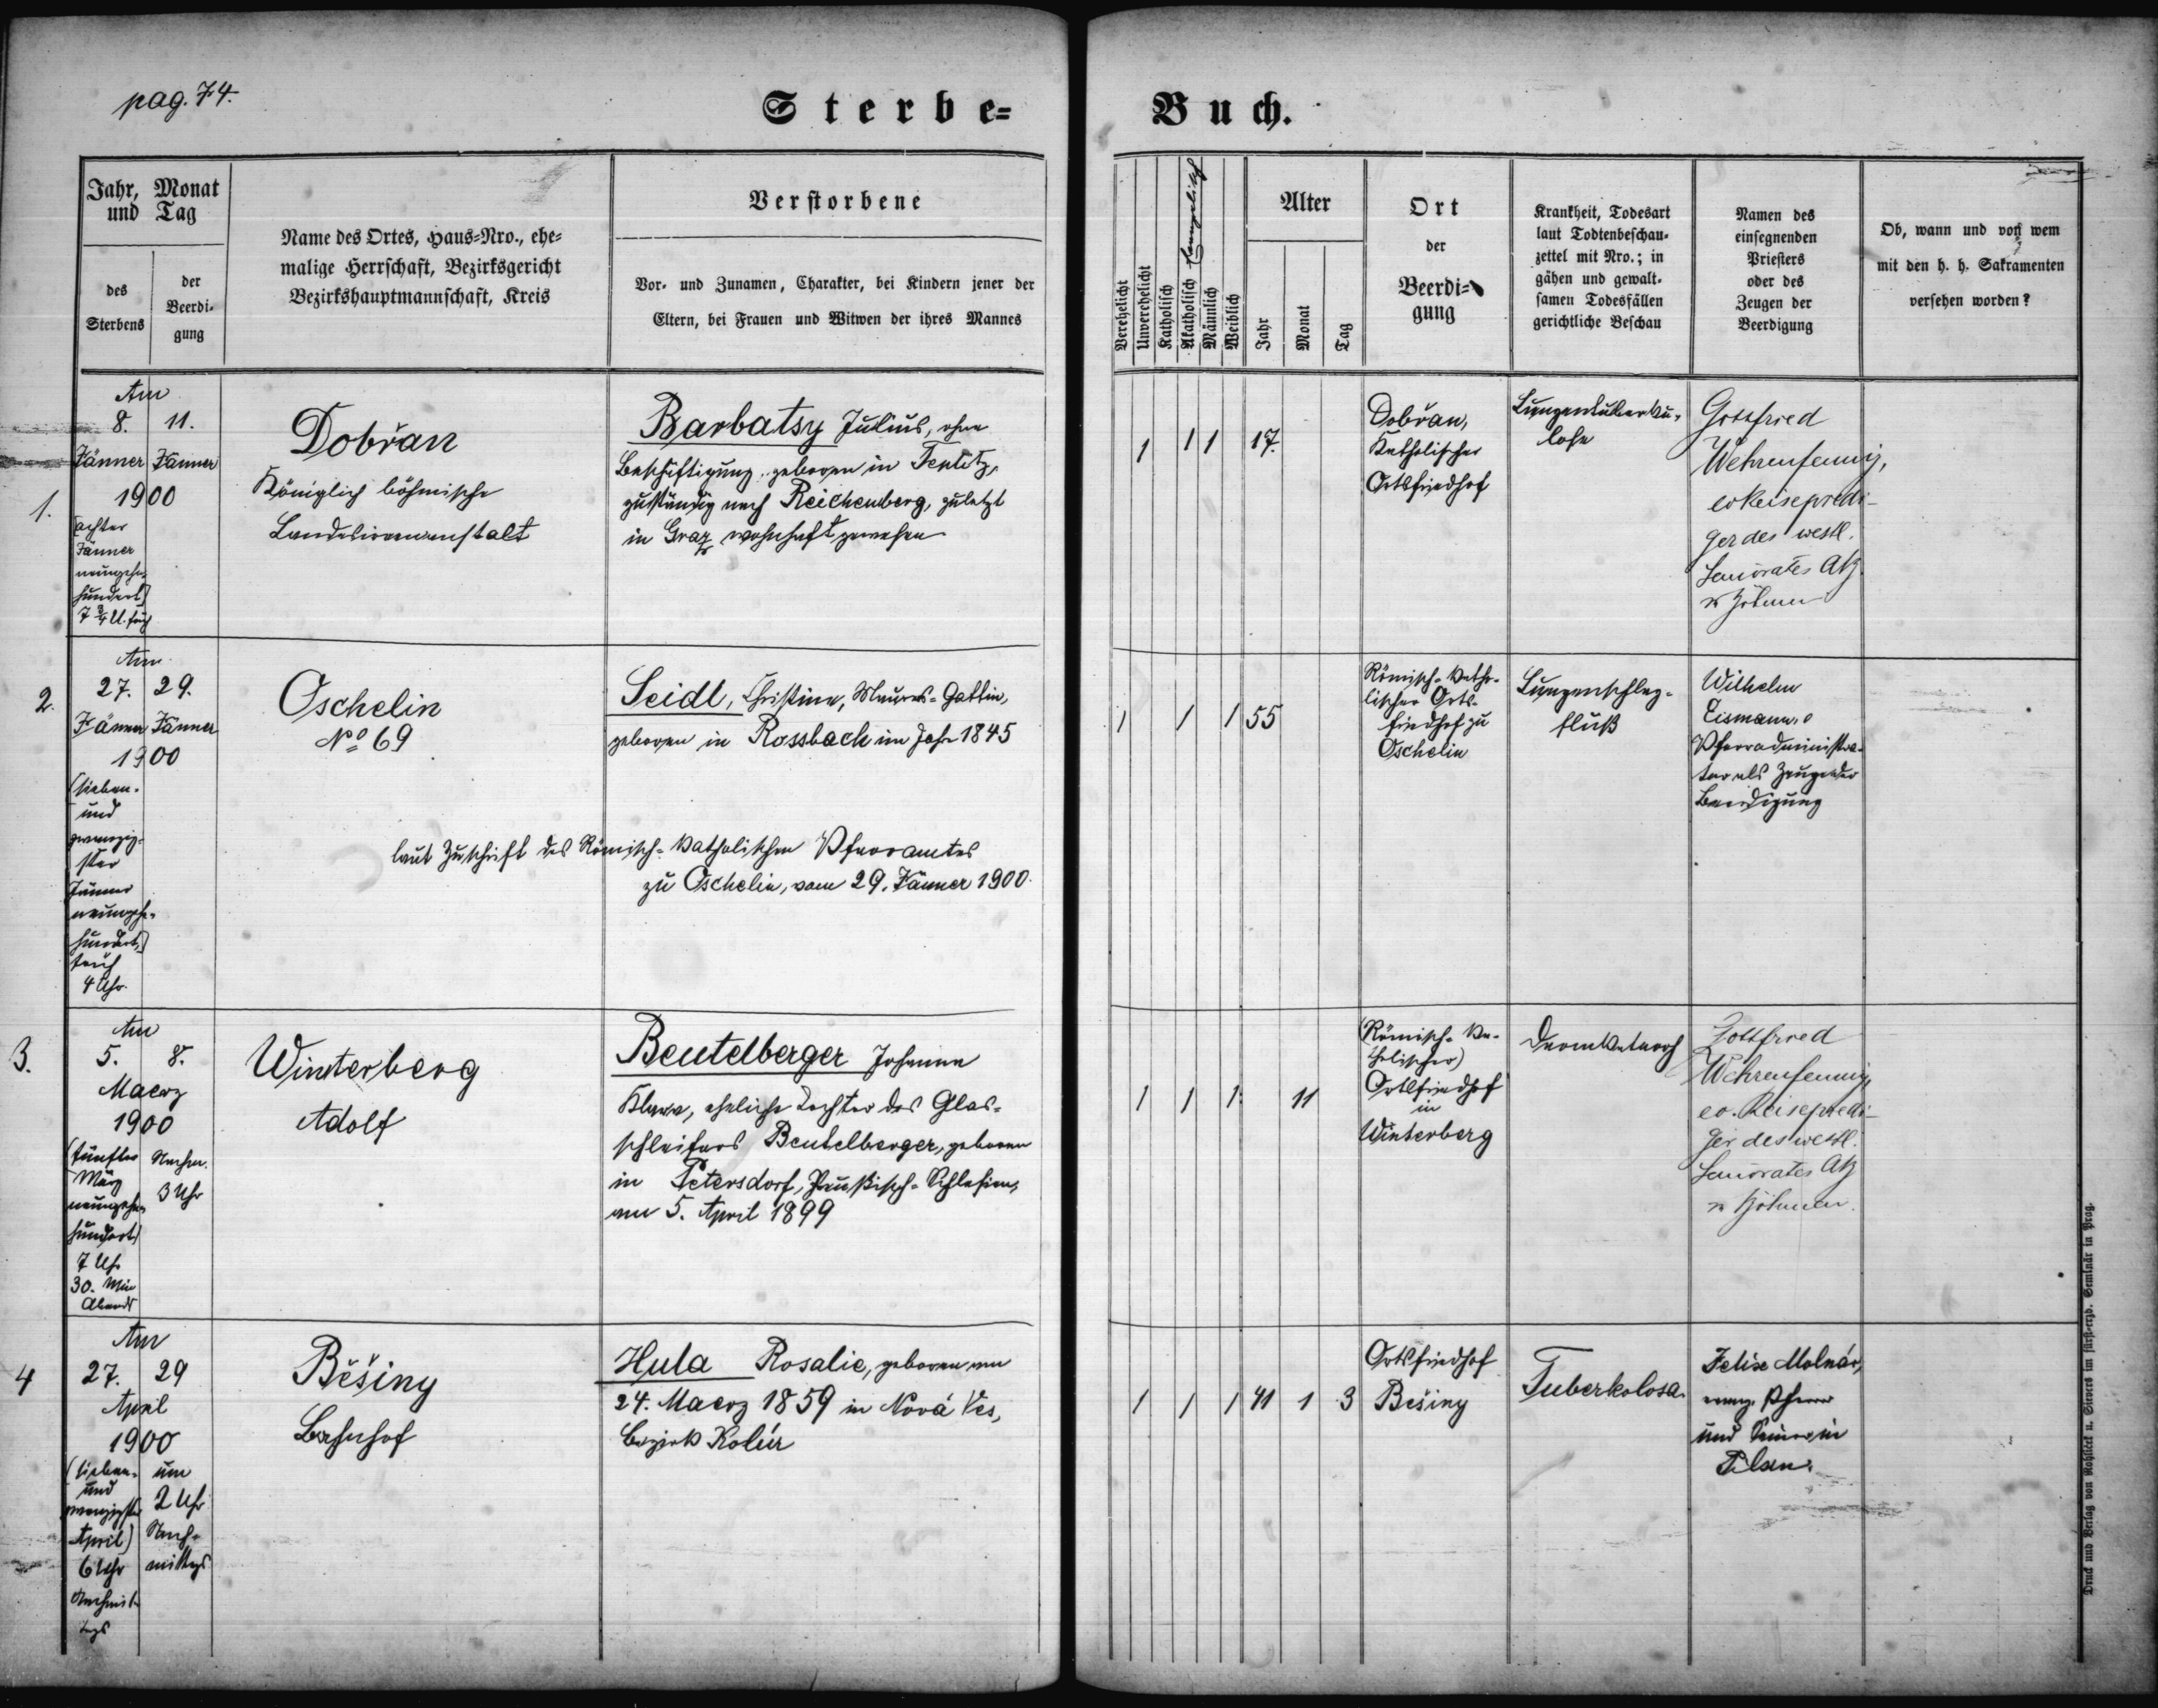 pag. 74.
Sterbe=
Buch.
Jahr, Monat
und Tag
des
Sterbens
der
Beerdi-
gung
Name des Ortes, Haus=Nro., ehe=
malige Herrschaft, Bezirksgericht
Bezirkshauptmannschaft, Kreis
Verstorbene
Vor- und Zunamen, Charakter, bei Kindern jener der
Eltern, bei Frauen und Witwen der ihres Mannes
Verehelicht
Unverehelicht
Katholisch
Akatholisch Evangelisch
Männlich
Weiblich
Alter
Jahr
Monat
Tag
Ort
der
Beerdi=
gung
Krankheit, Todesart
laut Todtenbeschau-
zettel mit Nro.; in
gähen und gewalt-
samen Todesfällen
gerichtliche Beschau
Namen des
einsegnenden
Priesters
oder des
Zeugen der
Beerdigung
Ob, wann und von wem
mit den h. h. Sakramenten
versehen worden?
1.
Am
8. 11.
Jänner Jänner
1900
(achter
Jänner
neunzehn
hundert)
7 3/4 U. früh
Dobřan
Königlich böhmische
Landesirrenanstalt
Barbatsy Julius, ohne
Beschäftigung, geboren in Teplitz,
zuständig nach Reichenberg, zuletzt
in Graz wohnhaft gewesen
1 1 1 17.
Dobřan,
Katholischer
Ortsfriedhof
Lungentuberku-
lose
Gottfried
Wehrenfennig,
ev Reisepredi-
ger des westl.
Seniorates AB
in Böhmen
2.
Am
27. 29.
Jänner Jänner
1900
(sieben-
und
zwanzig-
ster
Jänner
neunzehn-
hundert)
früh
4 Uhr.
Oschelin
No 69
Seidl, Christine, Maurers-Gattin,
geboren in Rossbach im Jahr 1845
laut Zuschrift des Römisch-katholischen Pfarramtes
zu Oschelin, vom 29. Jänner 1900.
1 1 1 55
Römisch-katho-
lischer Orts-
friedhof zu
Oschelin
Lungenschlag-
fluß
Wilhelm
Eismann,
Pfarradministra-
tor als Zeuge der
Beerdigung
3.
Am
5. 8.
Maerz
1900
(fünfter
März
neunzehn
hundert)
7 Uhr
30. Min
Abends
Nachm.
3 Uhr
Winterberg
Adolf
Beutelberger Johanna
Klara, eheliche Tochter des Glas-
schleifers Beutelberger, geboren
in Petersdorf, Preußisch-Schlesien,
am 5. April 1899
1 1 1 11
(Römisch-ka-
tholischer)
Ortsfriedhof
in
Winterberg
Darmkatarrh
Gottfried
Wehrenfennig,
ev. Reisepredi-
ger des westl.
Seniorates AB
in Böhmen.
4
Am
27. 29
April
1900
(sieben-
und
zwanzigster
April)
6 Uhr
Nachmit-
tags
um
2 Uhr
Nach-
mittags
Běšiny
Bahnhof
Hula Rosalie, geboren am
24. Maerz 1859 in Nová Ves,
Bezirk Kolín
1 1 1 41 1 3
Ortsfriedhof
Běšiny
Tuberkolosa.
Felix Molnár,
evang. Pfarrer
und Senior in
Pilsen.
Druck und Verlag von Rohlicek u. Sievers im fürst-erzb. Seminär in Prag.